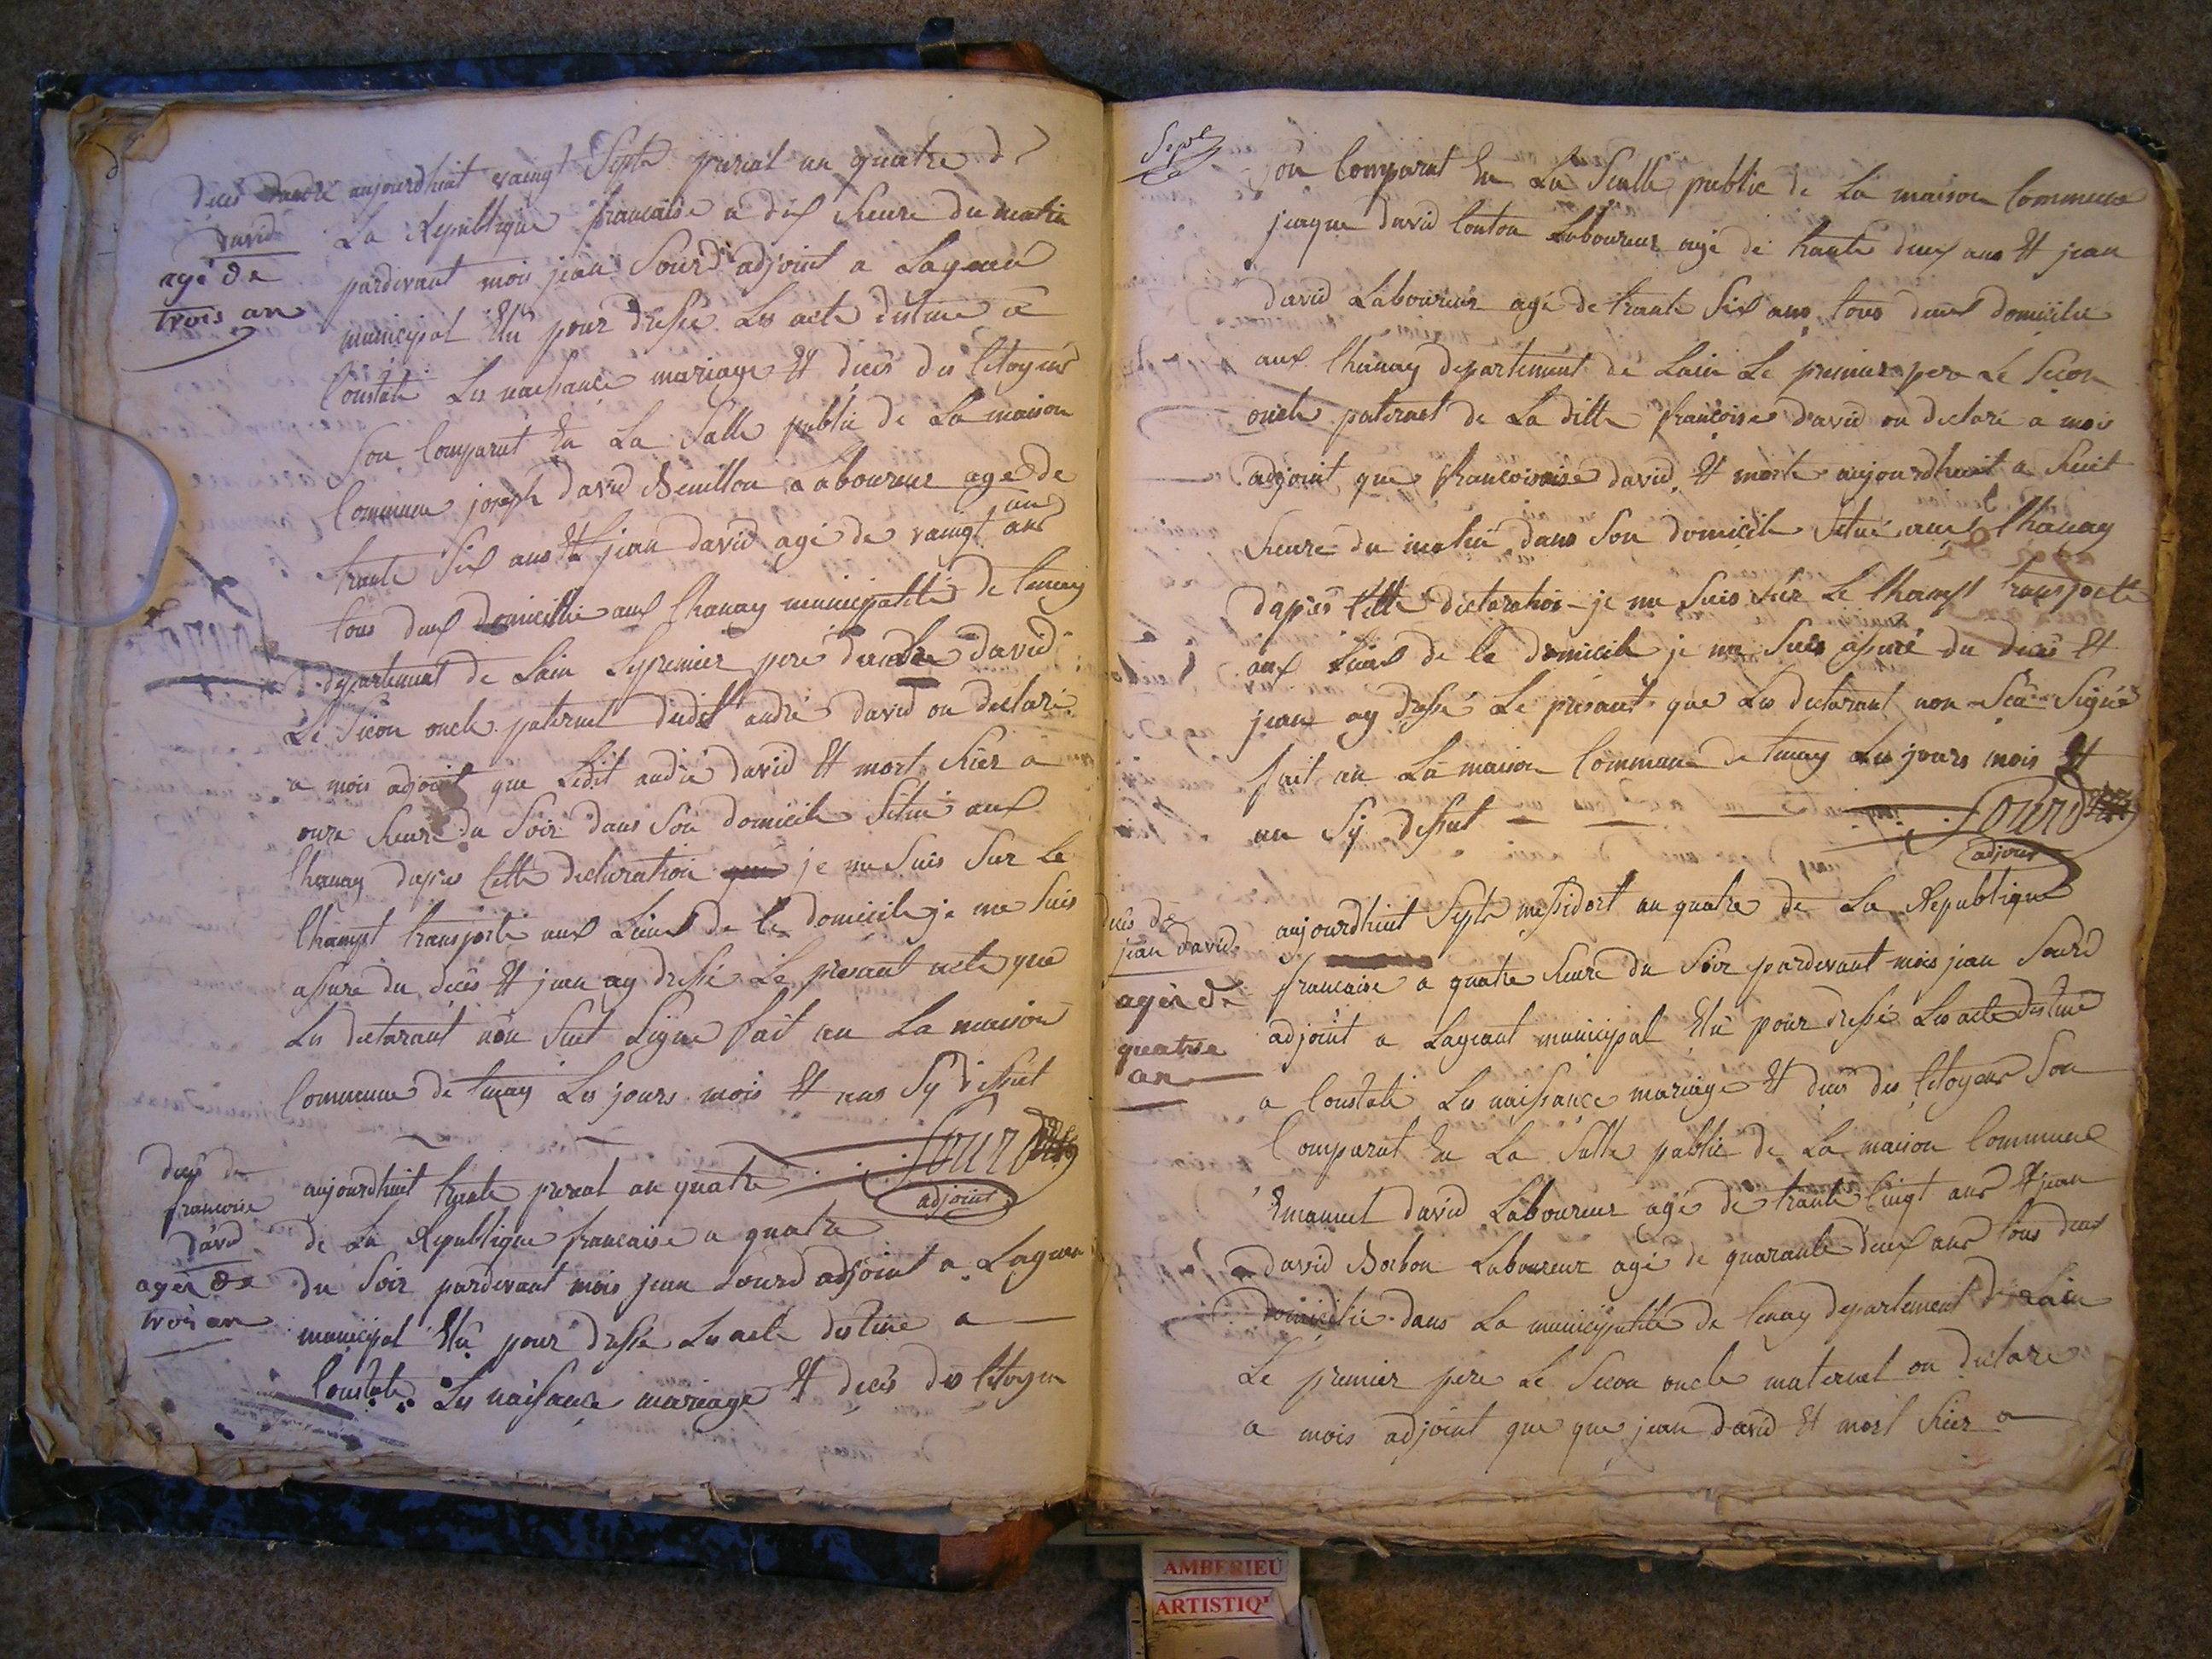 deces dandré
david
agé de
trois an
aujourdhuit vaingt Septe prerial an quatre d
La Republique francaise a dix heure du matin
pardevant mois jean Sourd adjoint a Lageant
municipal Elu pour dressée Les acte destiné a
Constaté Les naissance mariage Et decés des Citoyens
Son Comparut En La Salle public de La maison
Commune joseph david Benillon Laboureur agé de
trante Six ans Et jean david agé de vaingt un ans
tous deux domicillié aux Chanay municipalité de tenay
departement de Lain Lepremier pere dandre david
Le Secon oncle paternel dudit andré david on declaré
a mois adjoint que Ledit andré david Et mort hier a
onze heure du Soir dans Son domicile Situé aux
Chanay dapres Cette declaration je me Suis Sur Le
Champt transporté aux Lieux de Le domicile je me Suis
assuré du decés Et jean ay dressé Le presant acte que
Les declarant non Seut Signe fait an La maison
Commune de tenay Les jours mois Et ans Sy dessut
Sourd
adjoint
deces de
francoise
david
agér de
trois an
aujourdhuit trante prerial an quatre
de La Republique francaise a quatre
du Soir pardevant mois jean Sourd adjoint a Lagean
municipal Elu pour dressé Les acte destiné a
Constaté Les naissance mariage Et decés des Citoyen
Son Comparut En La Sealle public de La maison Commune
jeaque david Conton Laboureur agé de trante deux ans Et jean
david Laboureur agé de trante Six ans tous deux domicilié
aux Chanay departement de Lain Le premier pere Le Secon
oncle paternel de La ditte françoise david on declaré a mois
adjoint que francoisoise david Et morte aujourdhuit a huit
heure du matin dans Son domicile Situé aux Chanay
dapres Cette declaration je me Suis Sur Le Champt transporté
aux Lieux de Le domicile je me Suis assuré du deces Et
jean ay dressé Le presant que Les declarant non Seu Signé
fait an La maison Commune de tenay Les jours mois Et
an Sy dessut
Sourd
adjoint
deces de
jean david
agér de
quatre
an
aujourdhuit Septe messidort an quatre de La Republique
francaise a quatre heure du Soir pardevant mois jean Sourd
adjoint a Lageant municipal Elu pour dressé Les acte destiné
a Constaté Les naissance mariage Et deces des Citoyens Son
Comparut En La Salle public de La maison Commune
Emanuel david Laboureur agé de trante Cinqt ans Et jean
david Borbon Laboureur agé de quarante deux ans tous deux
domicillié dans La municipalité de tenay departement de Lain
Le premier pere Le Secon oncle maternel on declaré
a mois adjoint que que jean david Et mort hier a
AMBERIEU
ARTISTIQ